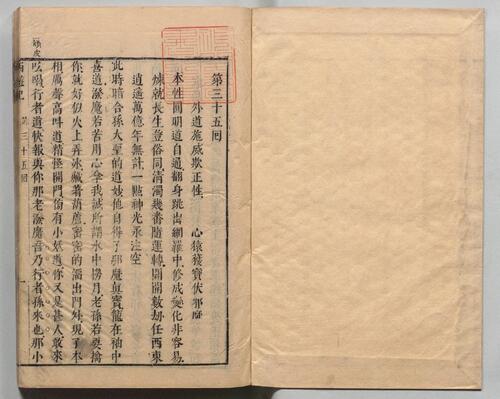 第三十五回
外道施威欺正性　心猿獲寶伏邪魔
本性圓明道自通翻身跳出網羅中修成變化非容易
煉就長生豈俗同清濁幾番隨運轉闢開數刼任西東
逍遙萬億年無計一點神光永注空
此時暗合孫大聖的道妙他自得了那魔真寶籠在袖中
喜道潑魔苦苦用心拿我誠所謂水中撈月老孫若要擒
你就好似火上弄冰藏著葫蘆密密的溜出門外現了本
相厲聲高叫道精怪開門傍有小妖道你又是甚人敢來
吆喝行者道快報與你那老潑魔吾乃行者孫來也那小
第三十五回
一